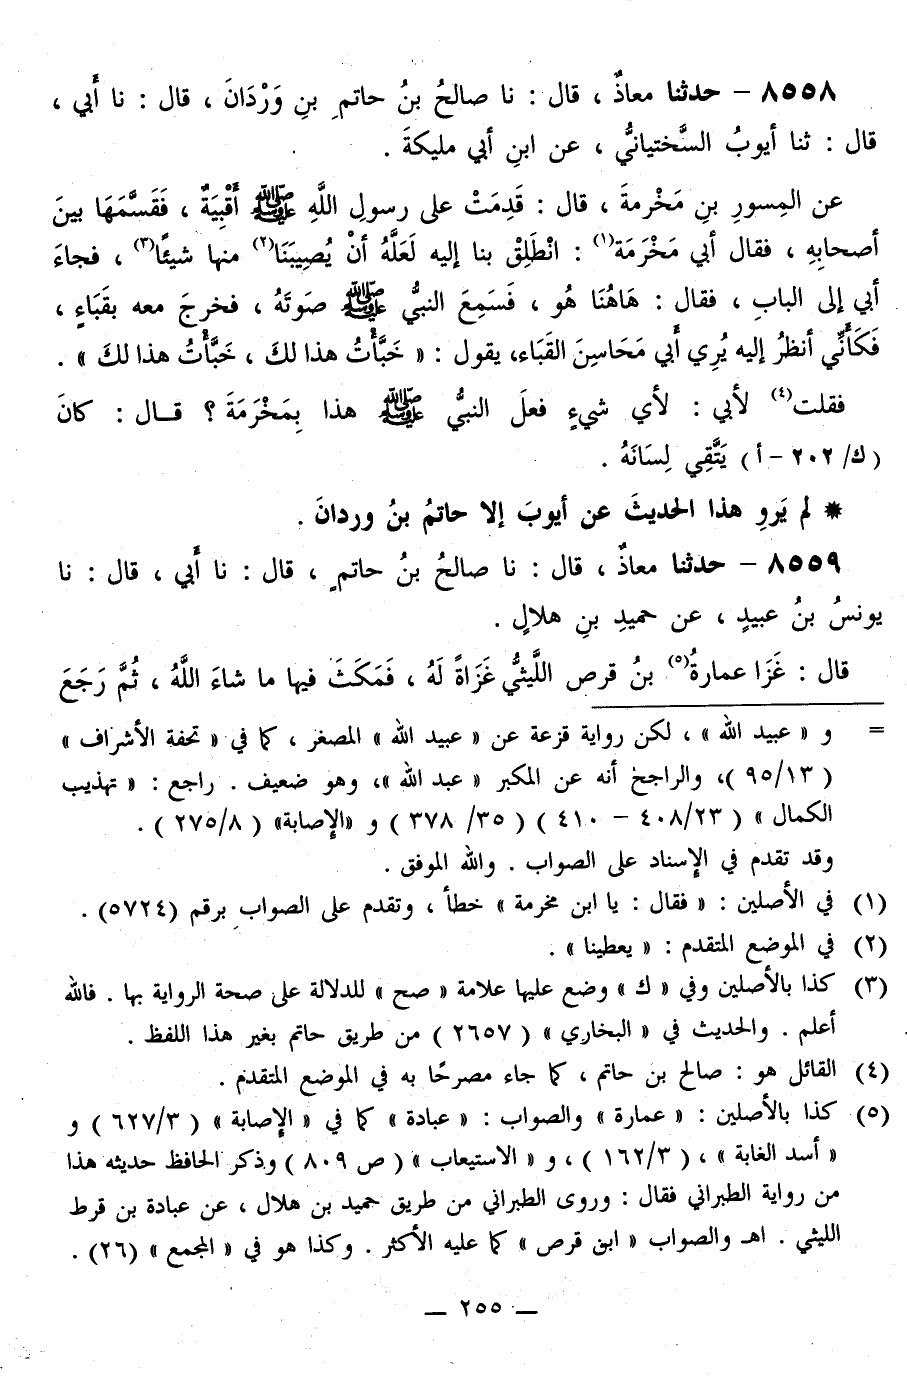 ٨٥٥٨ – حدثنا معاذٌ ، قال : نا صالحُ بنُ حاتمِ بنِ وَرْدَانَ ، قال : نا أَبي ،
قال : ثنا أيوبُ السَّختيانيُّ ، عن ابنِ أبي مليكةَ .
عن المِسورِ بنِ مَخْرمةَ ، قال : قَدِمَتْ على رسولِ اللَّهِ ﷺ أَقْبِيَةٌ ، فَقَسَّمَهَا بينَ
أصحابِهِ ، فقال أبي مَخْرَمَة(١) : انْطَلِقْ بنا إليه لَعَلَّهُ أنْ يُصِيبَنَا(٢) منها شيئًا(٣) ، فجاءَ
أبي إلى البابِ ، فقال : هَاهُنَا هُو ، فَسَمِعَ النبيُّ ﷺ صَوتَهُ ، فخرجَ معه بقَبَاءٍ ،
فَكَأَنِّي أنظرُ إليه يُرِي أَبي مَحَاسِنَ القَبَاء، يقول : « خَبَّأْتُ هذا لكَ ، خَبَّأْتُ هذا لكَ » .
فقلت(٤) لأبي : لأي شيءٍ فعلَ النبيُّ ﷺ هذا بِمَخْرَمَةَ ؟ قـال : كانَ
(ك/ ٢٠٢ – أ) يَتَّقِي لِسَانَهُ .
* لم يَروِ هذا الحديثَ عن أيوبَ إلا حاتمُ بنُ وردانَ .
٨٥٥٩ – حدثنا معاذٌ ، قال : نا صالحُ بنُ حاتمٍ ، قال : نا أَبي ، قال : نا
يونسُ بنُ عبيدٍ ، عن حميدِ بنِ هلالٍ .
قال : غَزَا عمارةُ(٥) بنُ قرص اللَّيثيُّ غَزَاةً لَهُ ، فَمَكَثَ فيها ما شاءَ اللَّهُ ، ثُمَّ رَجَعَ
= و « عبيد الله » ، لكن رواية قزعة عن « عبيد الله » المصغر ، كما في « تحفة الأشراف »
( ٩٥/١٣ )، والراجح أنه عن المكبر « عبد الله »، وهو ضعيف . راجع : « تهذيب
الكمال » ( ٤٠٨/٢٣ – ٤١٠ ) ( ٣٥/ ٣٧٨ ) و «الإصابة» ( ٢٧٥/٨ ) .
وقد تقدم في الإسناد على الصواب . والله الموفق .
(١) في الأصلين : « فقال : يا ابن مخرمة » خطأ ، وتقدم على الصواب برقم (٥٧٢٤) .
(٢) في الموضع المتقدم : « يعطينا » .
(٣) كذا بالأصلين وفي « ك » وضع عليها علامة « صح » للدلالة على صحة الرواية بها . فالله
أعلم . والحديث في « البخاري » ( ٢٦٥٧ ) من طريق حاتم بغير هذا اللفظ .
(٤) القائل هو : صالح بن حاتم ، كما جاء مصرحًا به في الموضع المتقدم .
(٥) كذا بالأصلين : « عمارة » والصواب : « عبادة » كما في « الإصابة » ( ٦٢٧/٣ ) و
« أسد الغابة » ، ( ١٦٢/٣ ) ، و « الاستيعاب » ( ص ٨٠٩ ) وذكر الحافظ حديثه هذا
من رواية الطبراني فقال : وروى الطبراني من طريق حميد بن هلال ، عن عبادة بن قرط
الليثي . اهـ والصواب « ابن قرص » كما عليه الأكثر . وكذا هو في « المجمع » (٢٦) .
— ٢٥٥ —